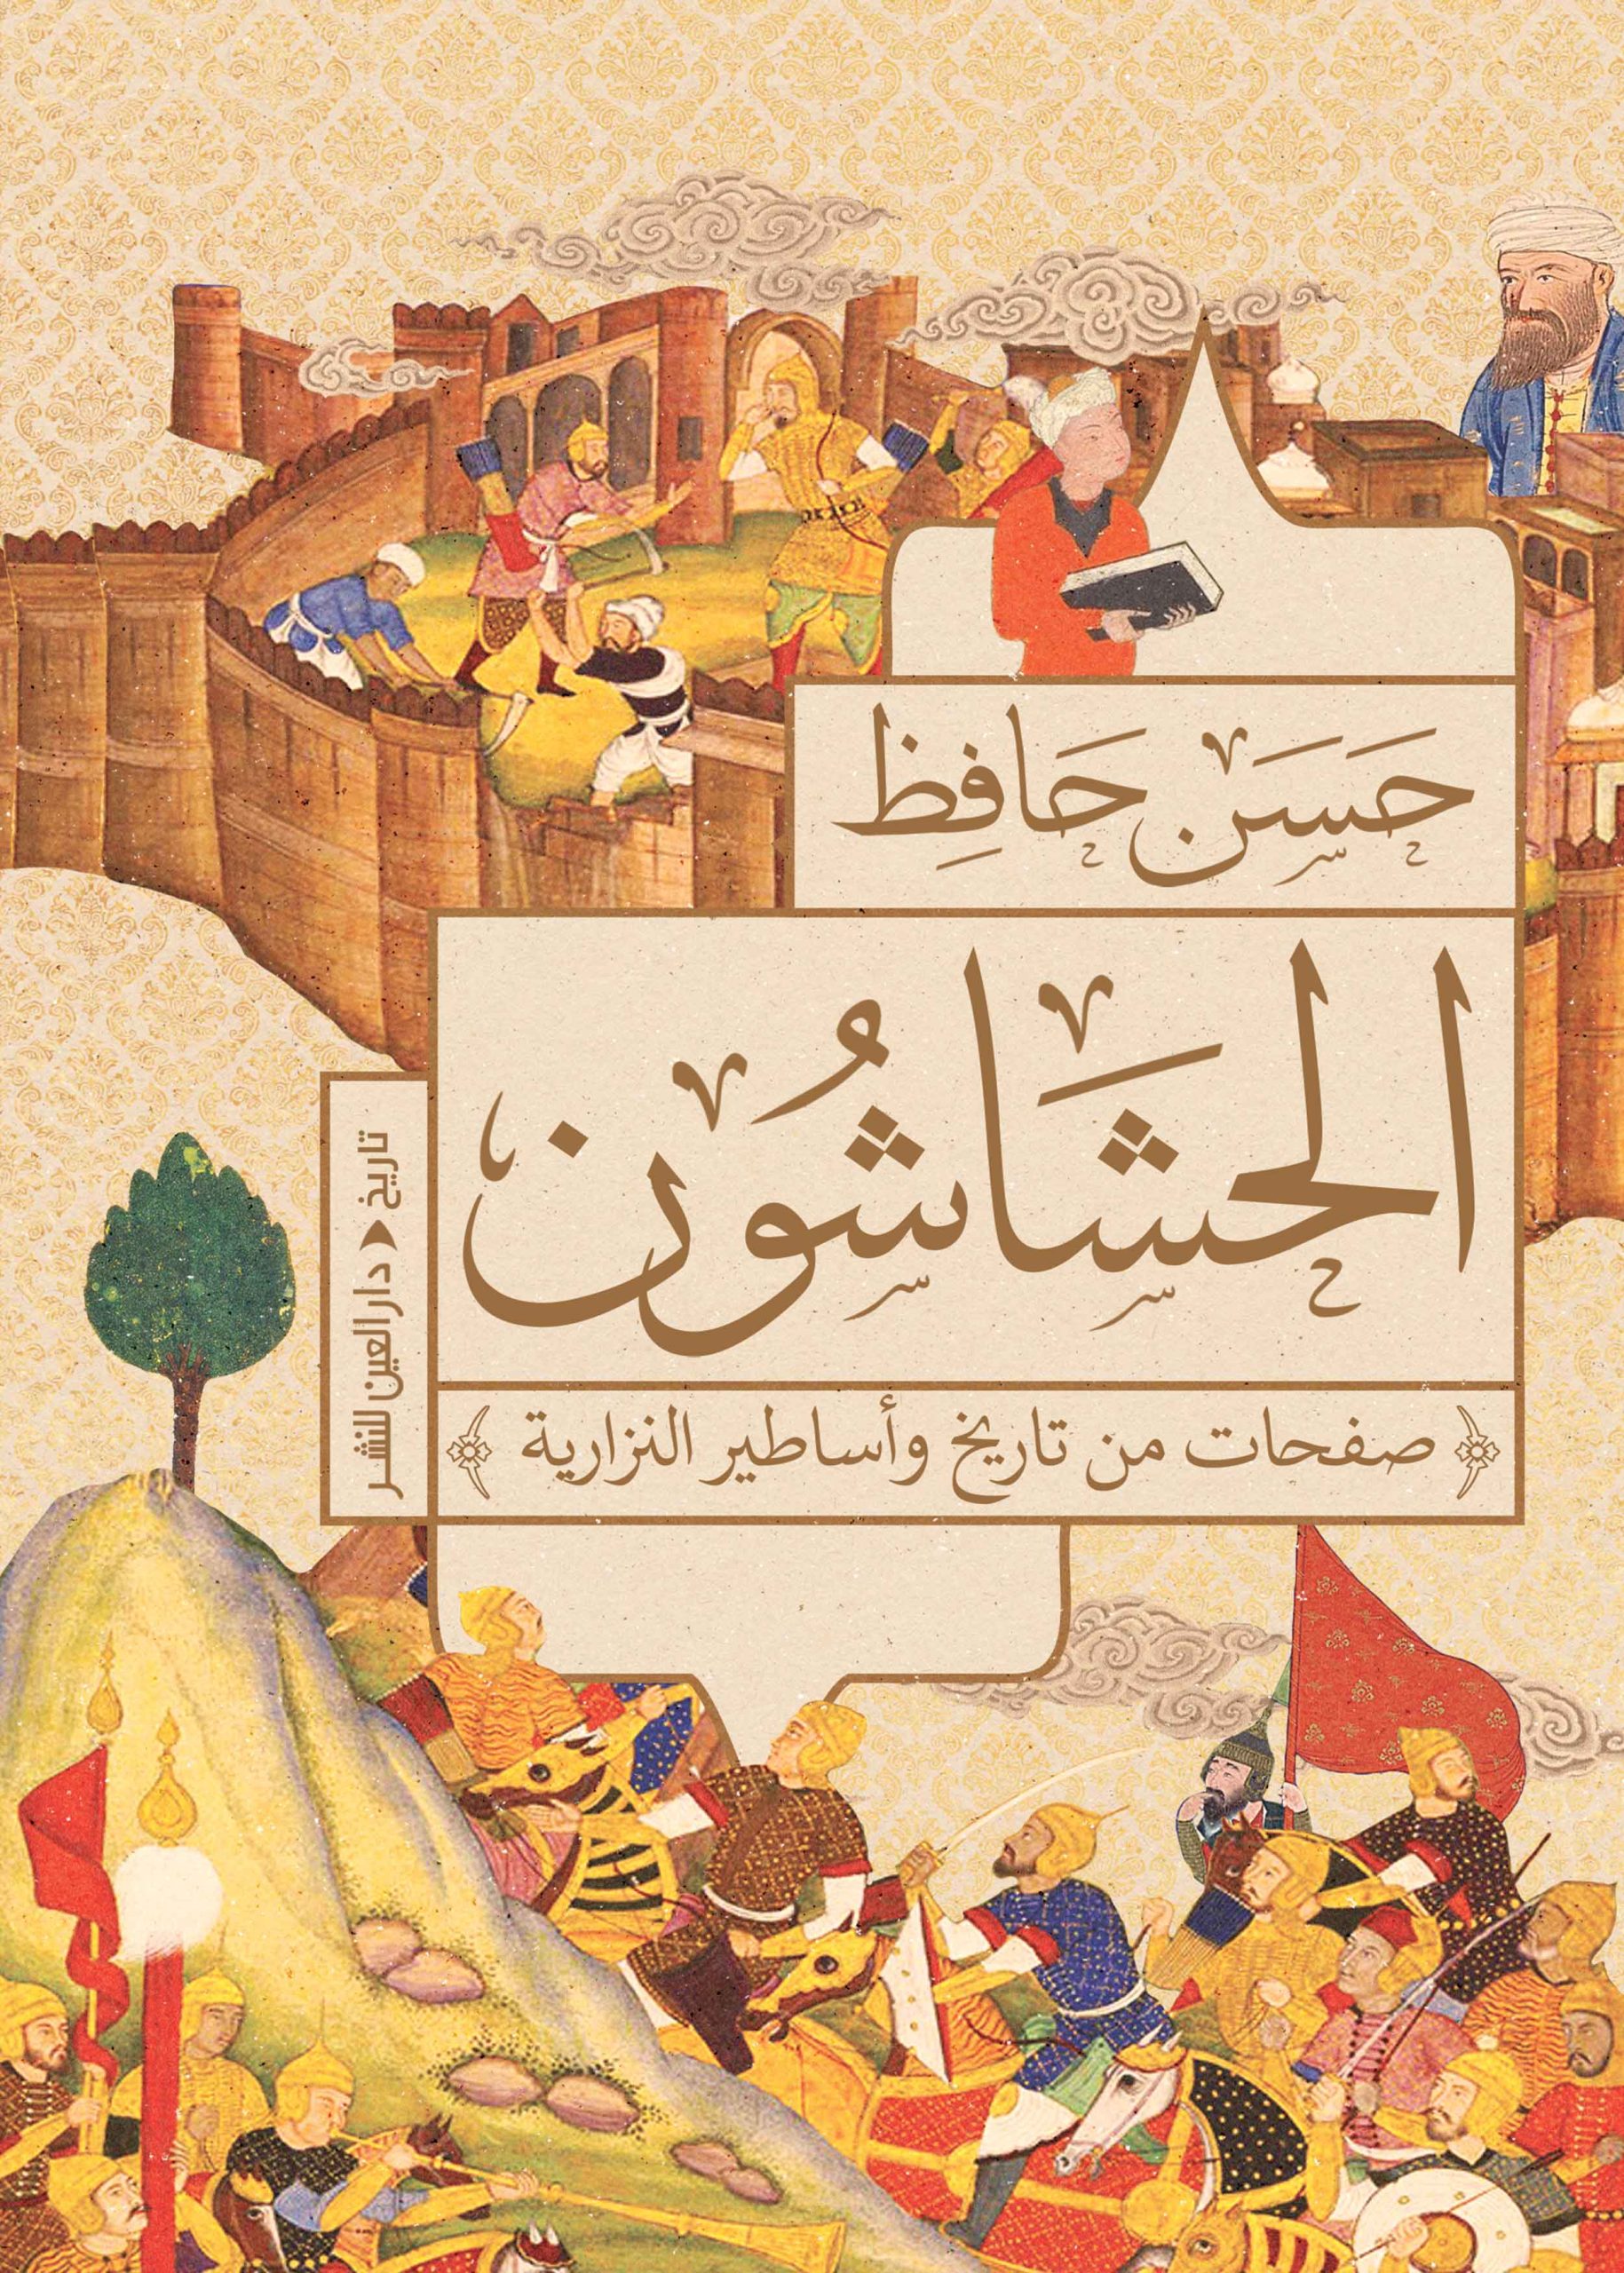 حَسَن حَافِظ
الحشَاشُون
صفحات من تاريخ وأساطير النزارية
تاريخ دار العين للنشر